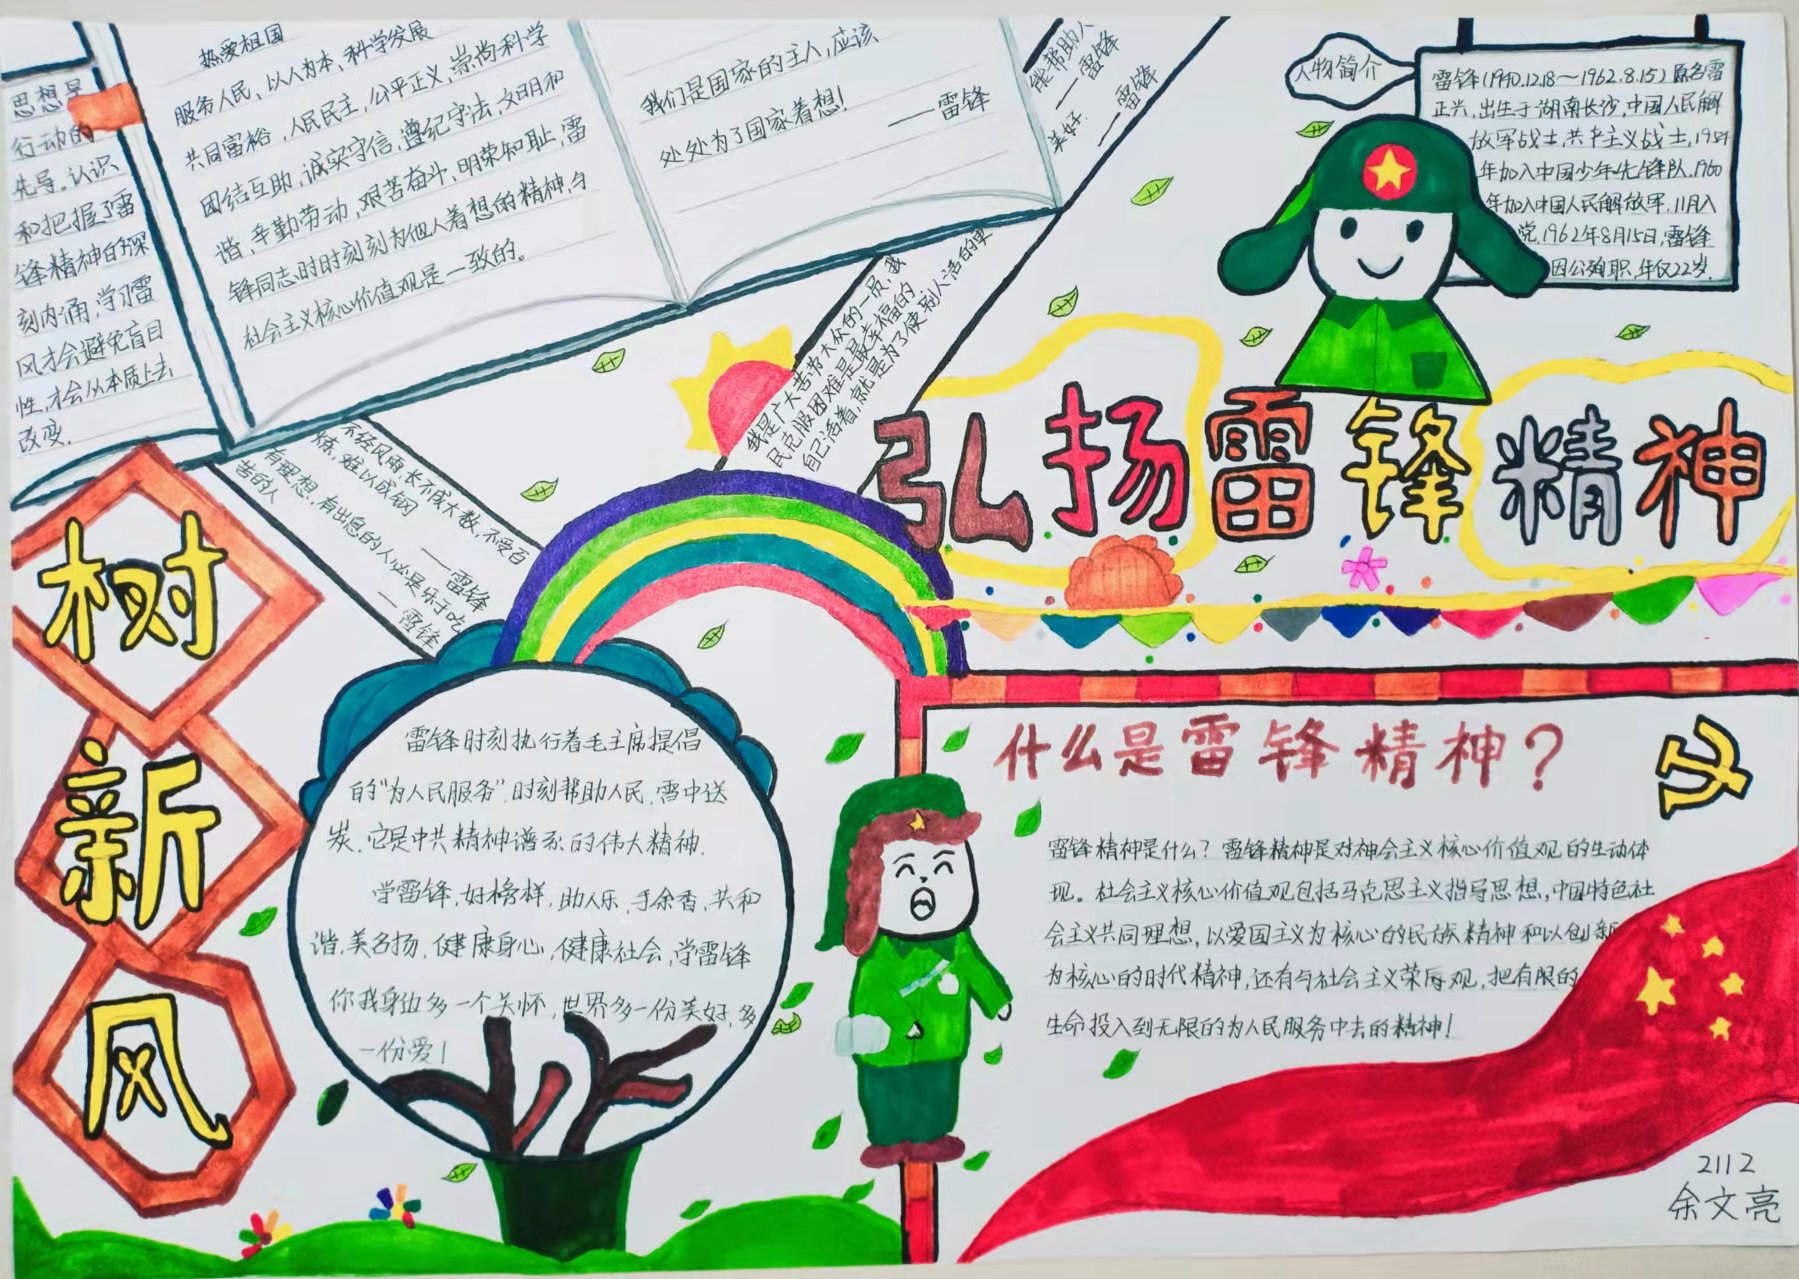 热爱祖国
服务人民、以人为本、科学发展
共同富裕，人民民主，公平正义，崇尚科学
团结互助，诚实守信，遵纪守法，文明和
谐，辛勤劳动，艰苦奋斗，明荣知耻，雷
锋同志时时刻刻为他人着想的精神，与
社会主义核心价值观是一致的。
思想是
行动的
先导。认识
和把握了雷
锋精神的深
刻内涌，学习雷
风才会避免盲目
性，才会从本质上去
改变．
我们是国家的主人，应该
处处为了国家着想！
——雷锋
能帮助人
——雷锋
美好．
——雷锋
我是广大劳苦大众的一员，我
民克服困难是最幸福的
自己活着，就是为了使别人活的更
不经风雨长不成大数，不受百
炼，难以成钢
——雷锋
有理想，有出息的人必是乐于吃
苦的人
—雷锋
人物简介
雷锋(1940.12.18～1962.8.15)原名雷
正兴，出生于湖南长沙，中国人民解
放军战士，共产主义战士，1954
年加入中国少年先锋队，1960
年加入中国人民解放军，11月入
党，1962年8月15日，雷锋
因公殉职，年仅22岁．
弘扬雷锋精神
树新风
雷锋时刻执行着毛主席提倡
的“为人民服务”，时刻帮助人民，雪中送
炭．它是中共精神谱系的伟大精神．
学雷锋，好榜样，助人乐，手余香，共和
谐，美名扬，健康身心，健康社会，学雷锋
你我身边多一个关怀，世界多一份美好，多
一份爱！
什么是雷锋精神？
雷锋精神是什么？雷锋精神是对神会主义核心价值观的生动体
现。社会主义核心价值观包括马克思主义指导思想，中国特色社
会主义共同理想，以爱国主义为核心的民族精神和以创新
为核心的时代精神，还有与社会主义荣辱观，把有限的
生命投入到无限的为人民服务中去的精神！
2112
余文亮